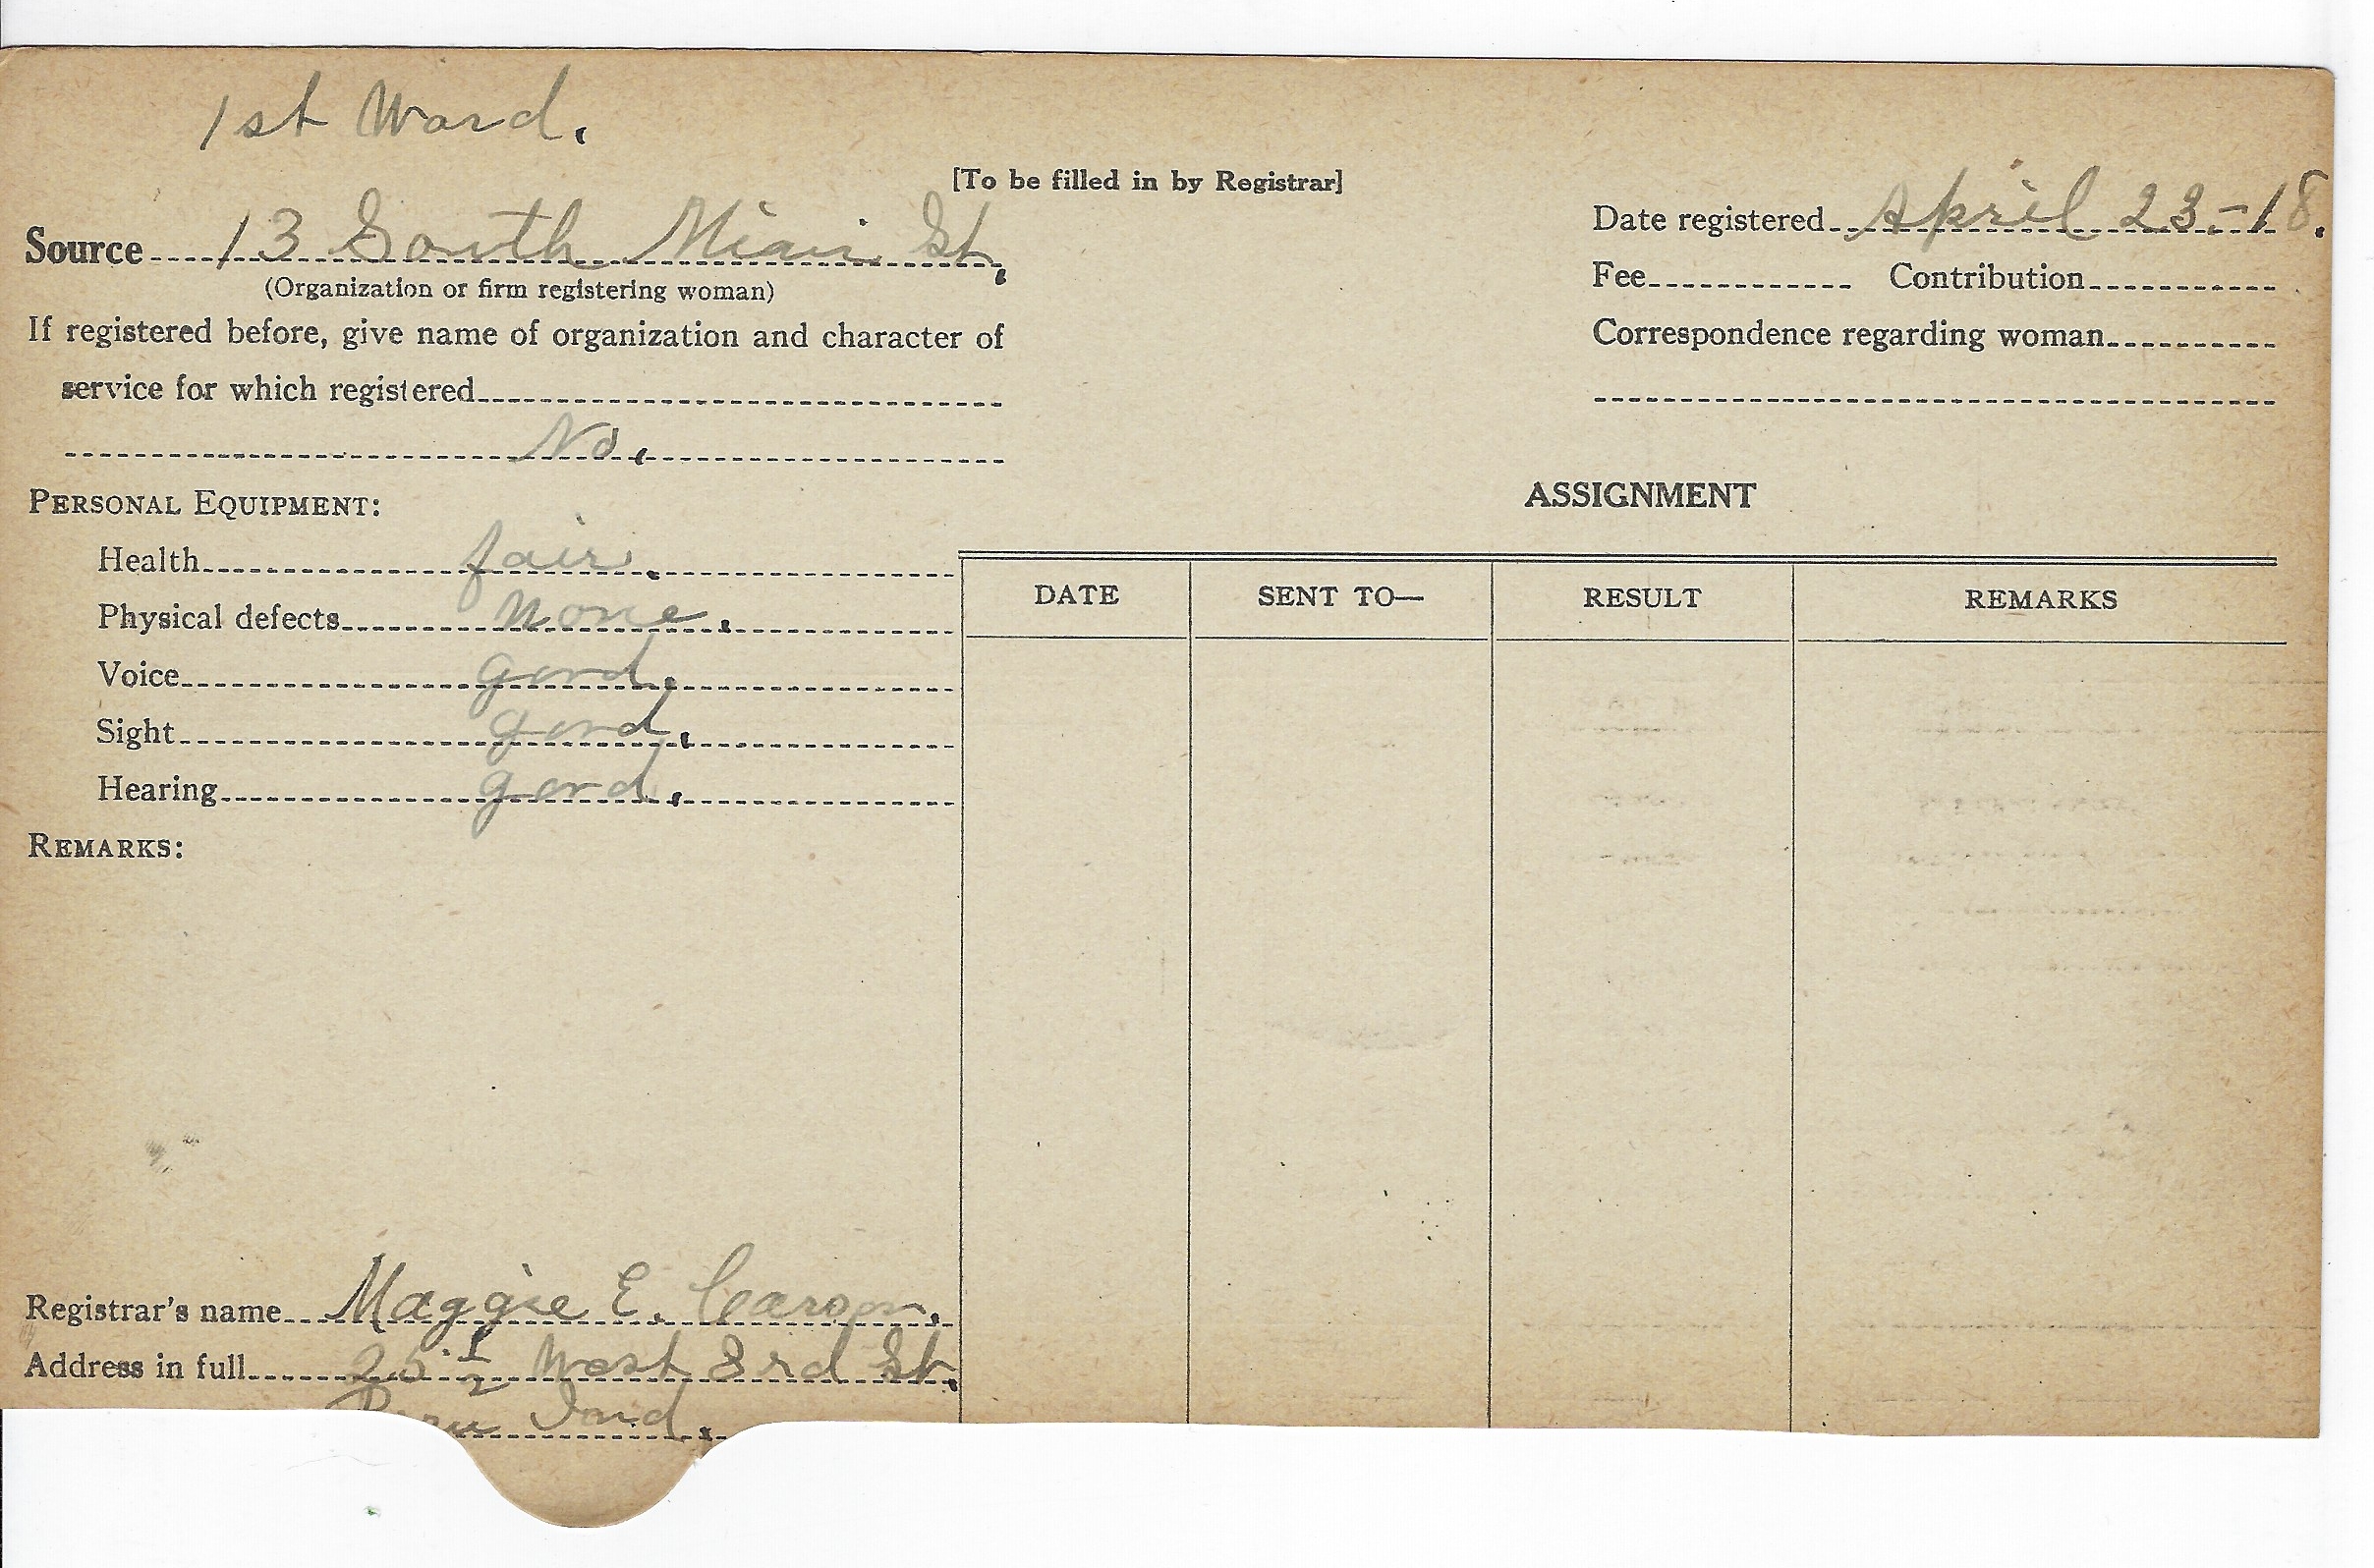 1st Ward.
[To be filled in by Registrar]
Source 13 South Miami St.
(Organization or firm registering woman)
If registered before, give name of organization and character of
service for which registered
No.
Date registered April 23-18.
Fee Contribution
Correspondence regarding woman
PERSONAL EQUIPMENT:
Health fair.
Physical defects None.
Voice good.
Sight good.
Hearing good.
REMARKS:
Registrar's name Maggie E. Carson.
Address in full 25 1/2 West 3rd St.
Peru Ind.
ASSIGNMENT
DATE SENT TO— RESULT REMARKS